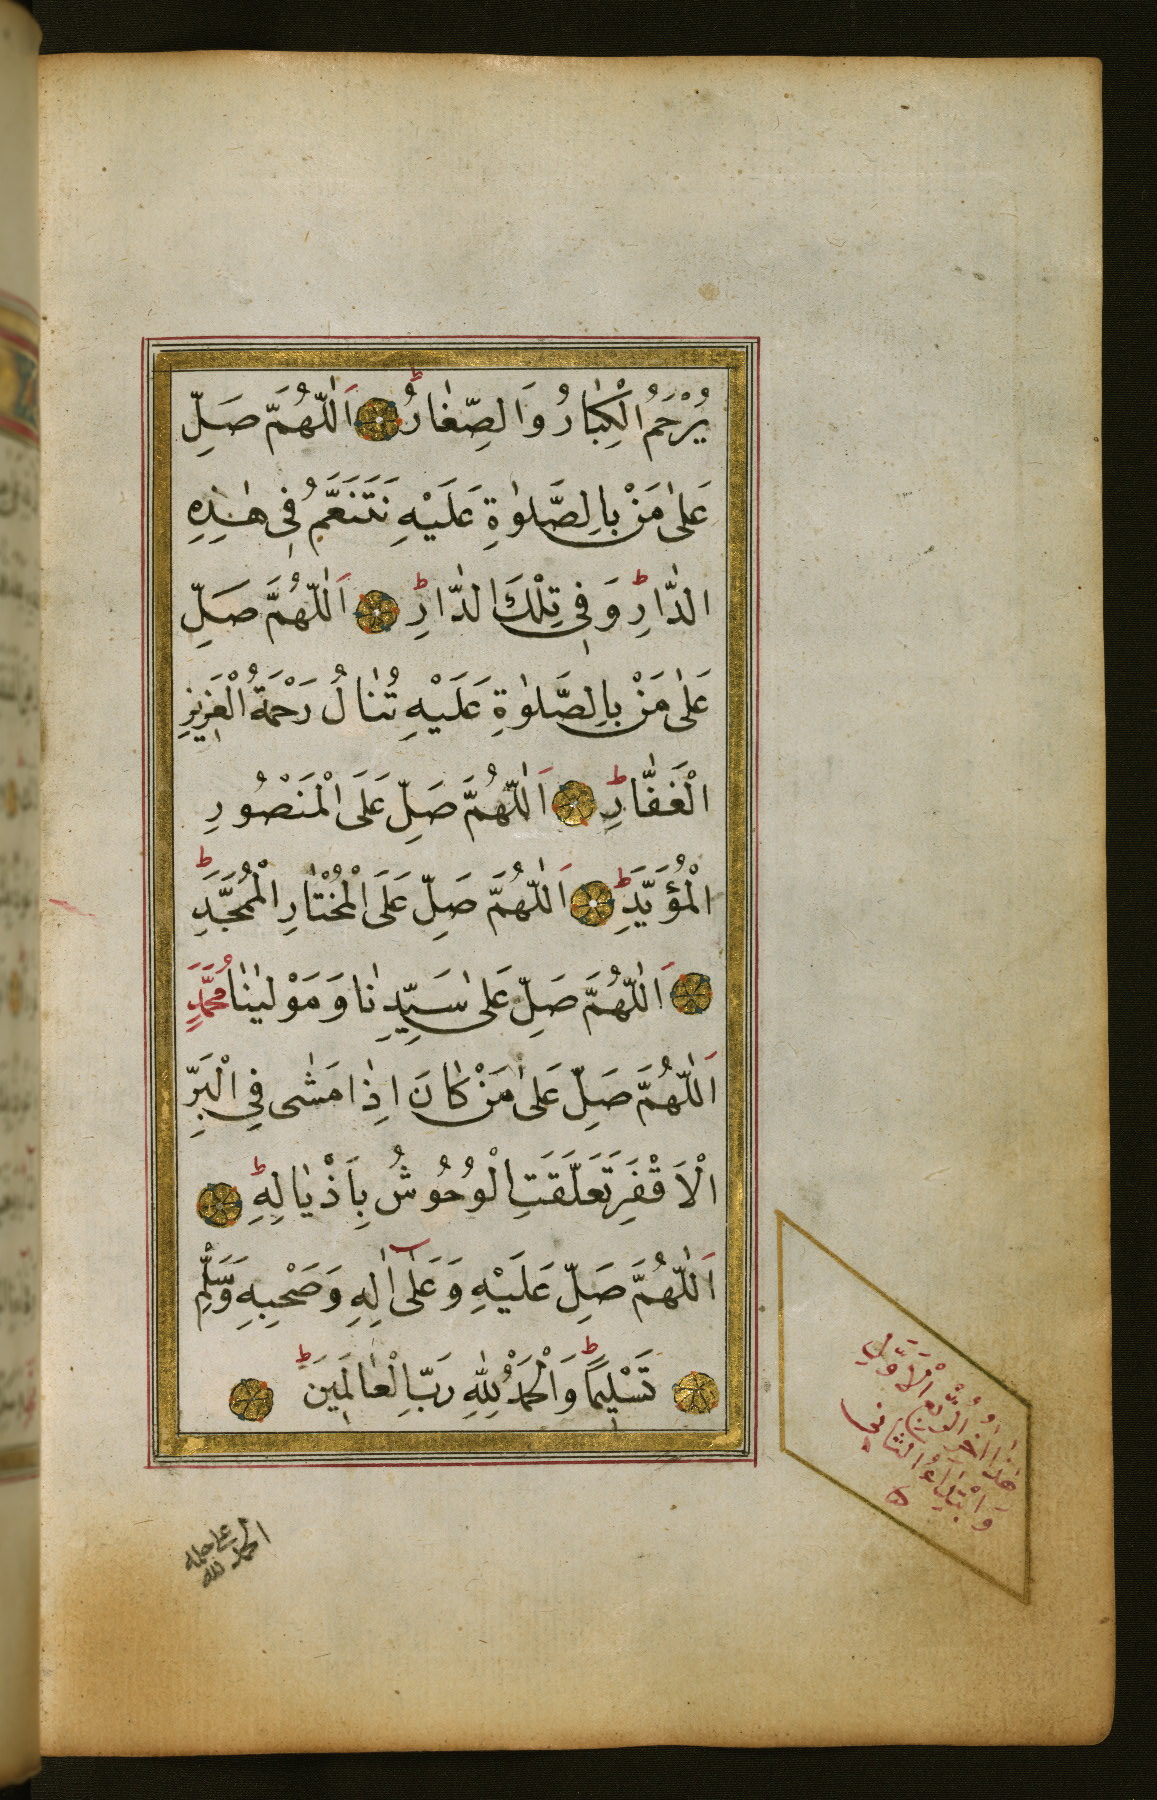 يُرْحَمُ الْكِبَارُ وَالصِّغَارُ ط اَللّٰهُمَّ صَلِّ
عَلٰى مَنْ بِالصَّلٰوةِ عَلَيْهِ نَتَنَعَّمُ فِي هٰذِهِ
الدَّارِ ط وَفِي تِلْكَ الدَّارِ ط اَللّٰهُمَّ صَلِّ
عَلٰى مَنْ بِالصَّلٰوةِ عَلَيْهِ تُنَالُ رَحْمَةُ الْعَزِيزِ
الْغَفَّارِ ط اَللّٰهُمَّ صَلِّ عَلَى الْمَنْصُورِ
الْمُؤَيَّدِ ط اَللّٰهُمَّ صَلِّ عَلَى الْمُخْتَارِ الْمُمَجَّدِ ط
اَللّٰهُمَّ صَلِّ عَلٰى سَيِّدِنَا وَمَوْلٰينَا مُحَمَّدٍ
اَللّٰهُمَّ صَلِّ عَلٰى مَنْ كَانَ اِذَا مَشٰى فِي الْبَرِّ
الْاَقْفَرِ تَعَلَّقَتِ الْوُحُوشُ بِاَذْيَالِهِ ط
اَللّٰهُمَّ صَلِّ عَلَيْهِ وَعَلٰى اٰلِهِ وَصَحْبِهِ وَسَلِّمْ
تَسْلِيمًا ط وَالْحَمْدُ لِلّٰهِ رَبِّ الْعَالَمِينَ ط
هٰذَا اٰخِرُ الرُّبْعِ الْاَوَّلِ
وَابْتِدَاءُ الثَّانِي
ه
الحمد لله
على حلمه